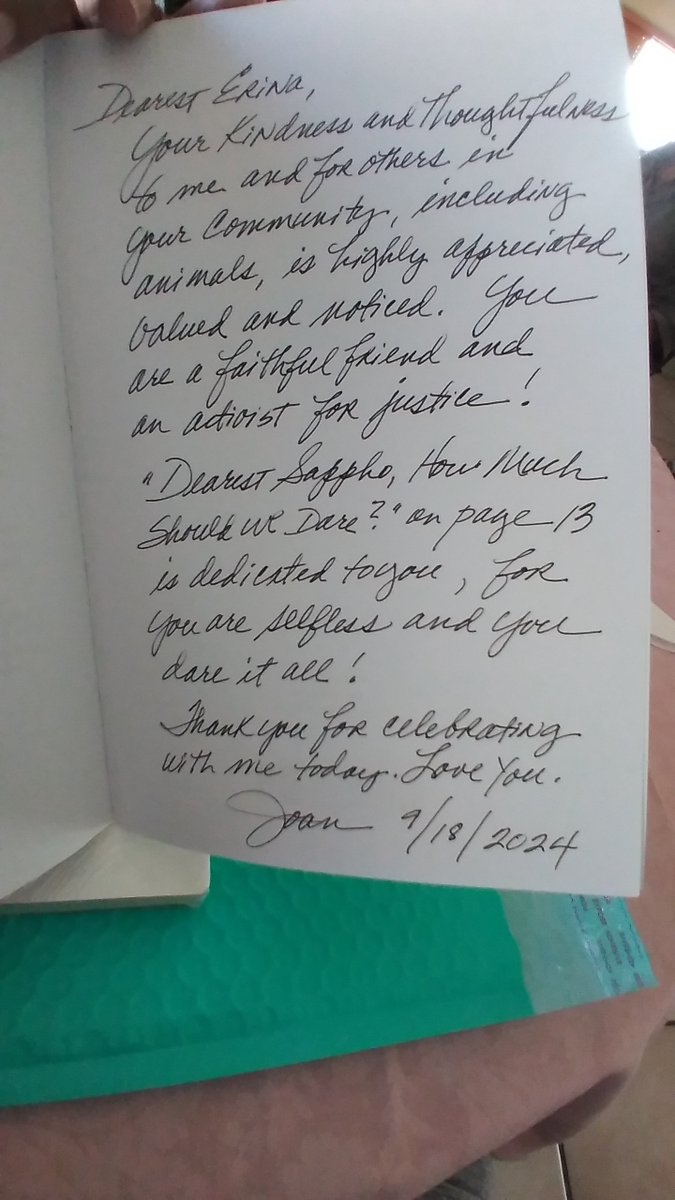 Dearest Erina,
Your Kindness and Thoughtfulness
to me and for others in
your Community, including
animals, is highly appreciated,
valued and noticed. You
are a faithful friend and
an activist for justice!
"Dearest Sappho, How Much
Should We Dare?" on page 13
is dedicated to you, for
you are selfless and you
dare it all!
Thank you for celebrating
with me today. Love You.
Joan 9/18/2024